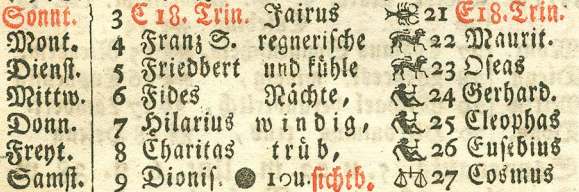 Sonnt. 3 C 18. Trin. Jairus 21 E 18. Trin.
Mont. 4 Franz S. regnerische 22 Maurit.
Dienst. 5 Friedbert und kühle 23 Oseas
Mittw. 6 Fides Nächte, 24 Gerhard.
Donn. 7 Hilarius windig, 25 Cleophas
Freyt. 8 Charitas trüb, 26 Eusebius
Samst. 9 Dionis. ● 10u. sichtb. 27 Cosmus